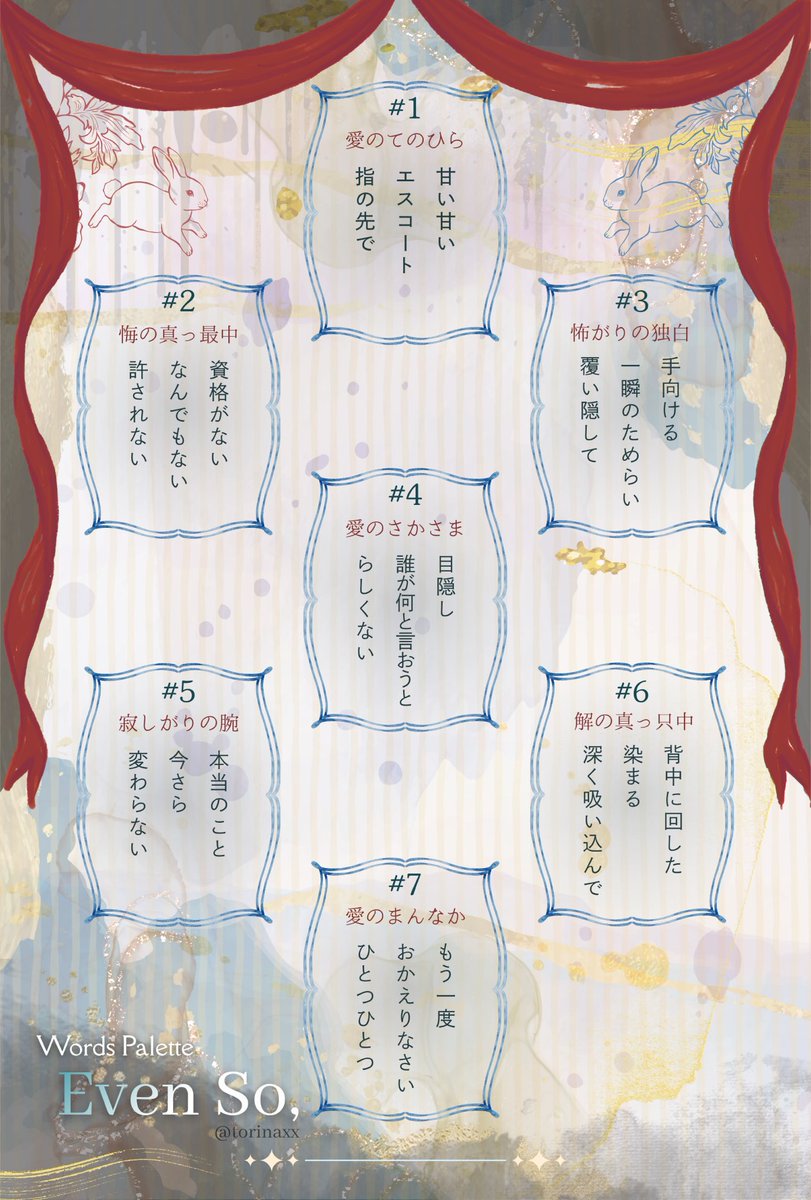 #1
愛のてのひら
甘い甘い
エスコート
指の先で
#2
悔の真っ最中
資格がない
なんでもない
許されない
#3
怖がりの独白
手向ける
一瞬のためらい
覆い隠して
#4
愛のさかさま
目隠し
誰が何と言おうと
らしくない
#5
寂しがりの腕
本当のこと
今さら
変わらない
#6
解の真っ只中
背中に回した
染まる
深く吸い込んで
#7
愛のまんなか
もう一度
おかえりなさい
ひとつひとつ
Words Palette
Even So,
@torinaxx